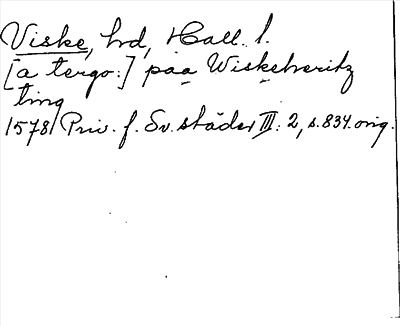 Viske, hd, Hall. l.
[a tergo:] paa Wiskeheritz
ting
1578 Priv. f. Sv. städer III: 2, s. 834. orig.